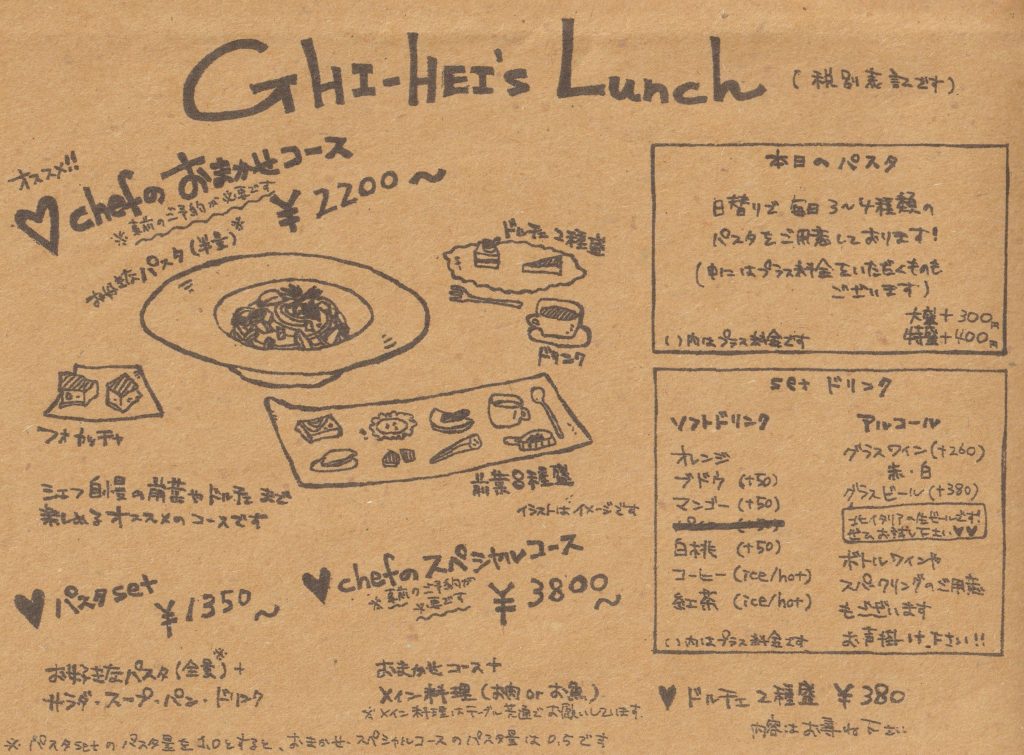 GHI-HEI's Lunch (税別表記です)
オススメ!!
♡chefのおまかせコース
※事前のご予約が必要です
¥2200〜
お好きなパスタ(半量)※
ドルチェ2種盛
ドリンク
フォカッチャ
前菜8種盛
イラストはイメージです
シェフ自慢の前菜やドルチェまで
楽しめるオススメのコースです
♥パスタset
¥1350〜
お好きなパスタ(全量)※+
サラダ・スープ・パン・ドリンク
♥chefのスペシャルコース
※事前のご予約が
必要です
¥3800〜
おまかせコース+
メイン料理(お肉orお魚)
※メイン料理はテーブル共通でお願いしています
※パスタsetのパスタ量を1.0とすると、おまかせ・スペシャルコースのパスタ量は0.5です
本日のパスタ
日替りで毎日3〜4種類の
パスタをご用意しております!
(中にはプラス料金をいただくものも
ございます)
大盛+300円
特盛+400円
( )内はプラス料金です
set ドリンク
ソフトドリンク
オレンジ
ブドウ (+50)
マンゴー (+50)
白桃 (+50)
コーヒー (ice/hot)
紅茶 (ice/hot)
( )内はプラス料金です
アルコール
グラスワイン(+260)
赤・白
グラスビール(+380)
北イタリアの生ビールです!
ぜひお試し下さい♥♥
ボトルワインや
スパークリングのご用意
もございます
お声掛け下さい!!
♥ドルチェ2種盛 ¥380
内容はお尋ね下さい